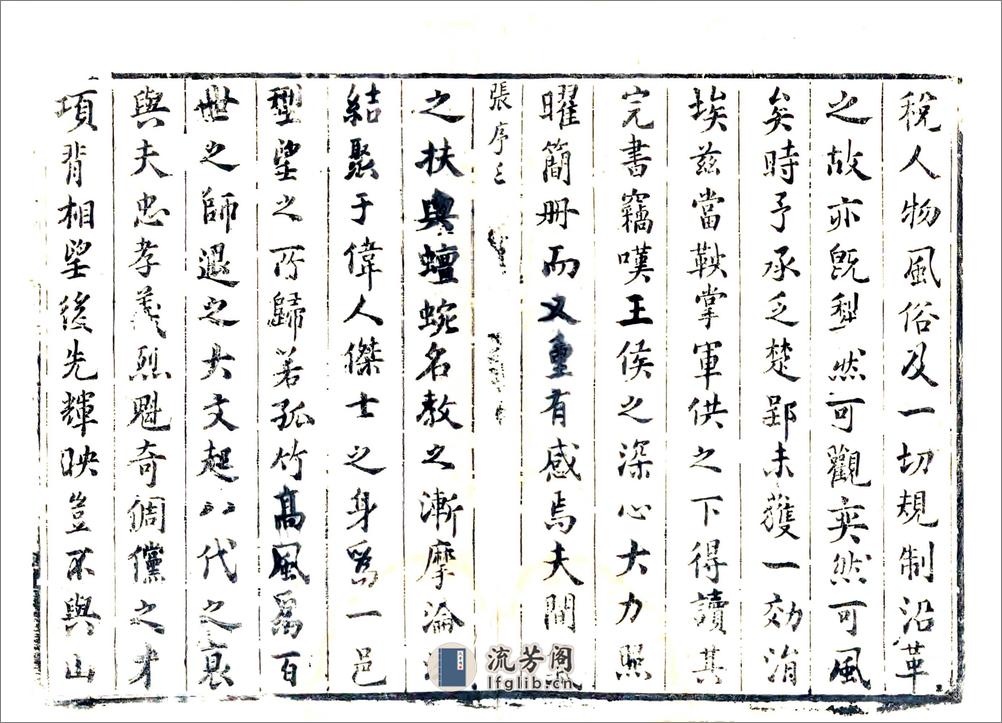 稅人物風俗及一切規制沿革
之故亦既犁然可觀奕然可風
矣時予承乏楚郢未獲一効涓
埃茲當鞅掌軍供之下得讀其
完書竊嘆王侯之深心大力照
曜簡冊而又重有感焉夫間
張序三
之扶輿蟺蜿名教之漸摩淪
結聚于偉人傑士之身爲一邑
型望之所歸若孤竹高風爲百
世之師退之大文起八代之衰
與夫忠孝義烈魁奇倜儻之才
項背相望後先輝映豈不與山
流芳阁
lfglib.cn